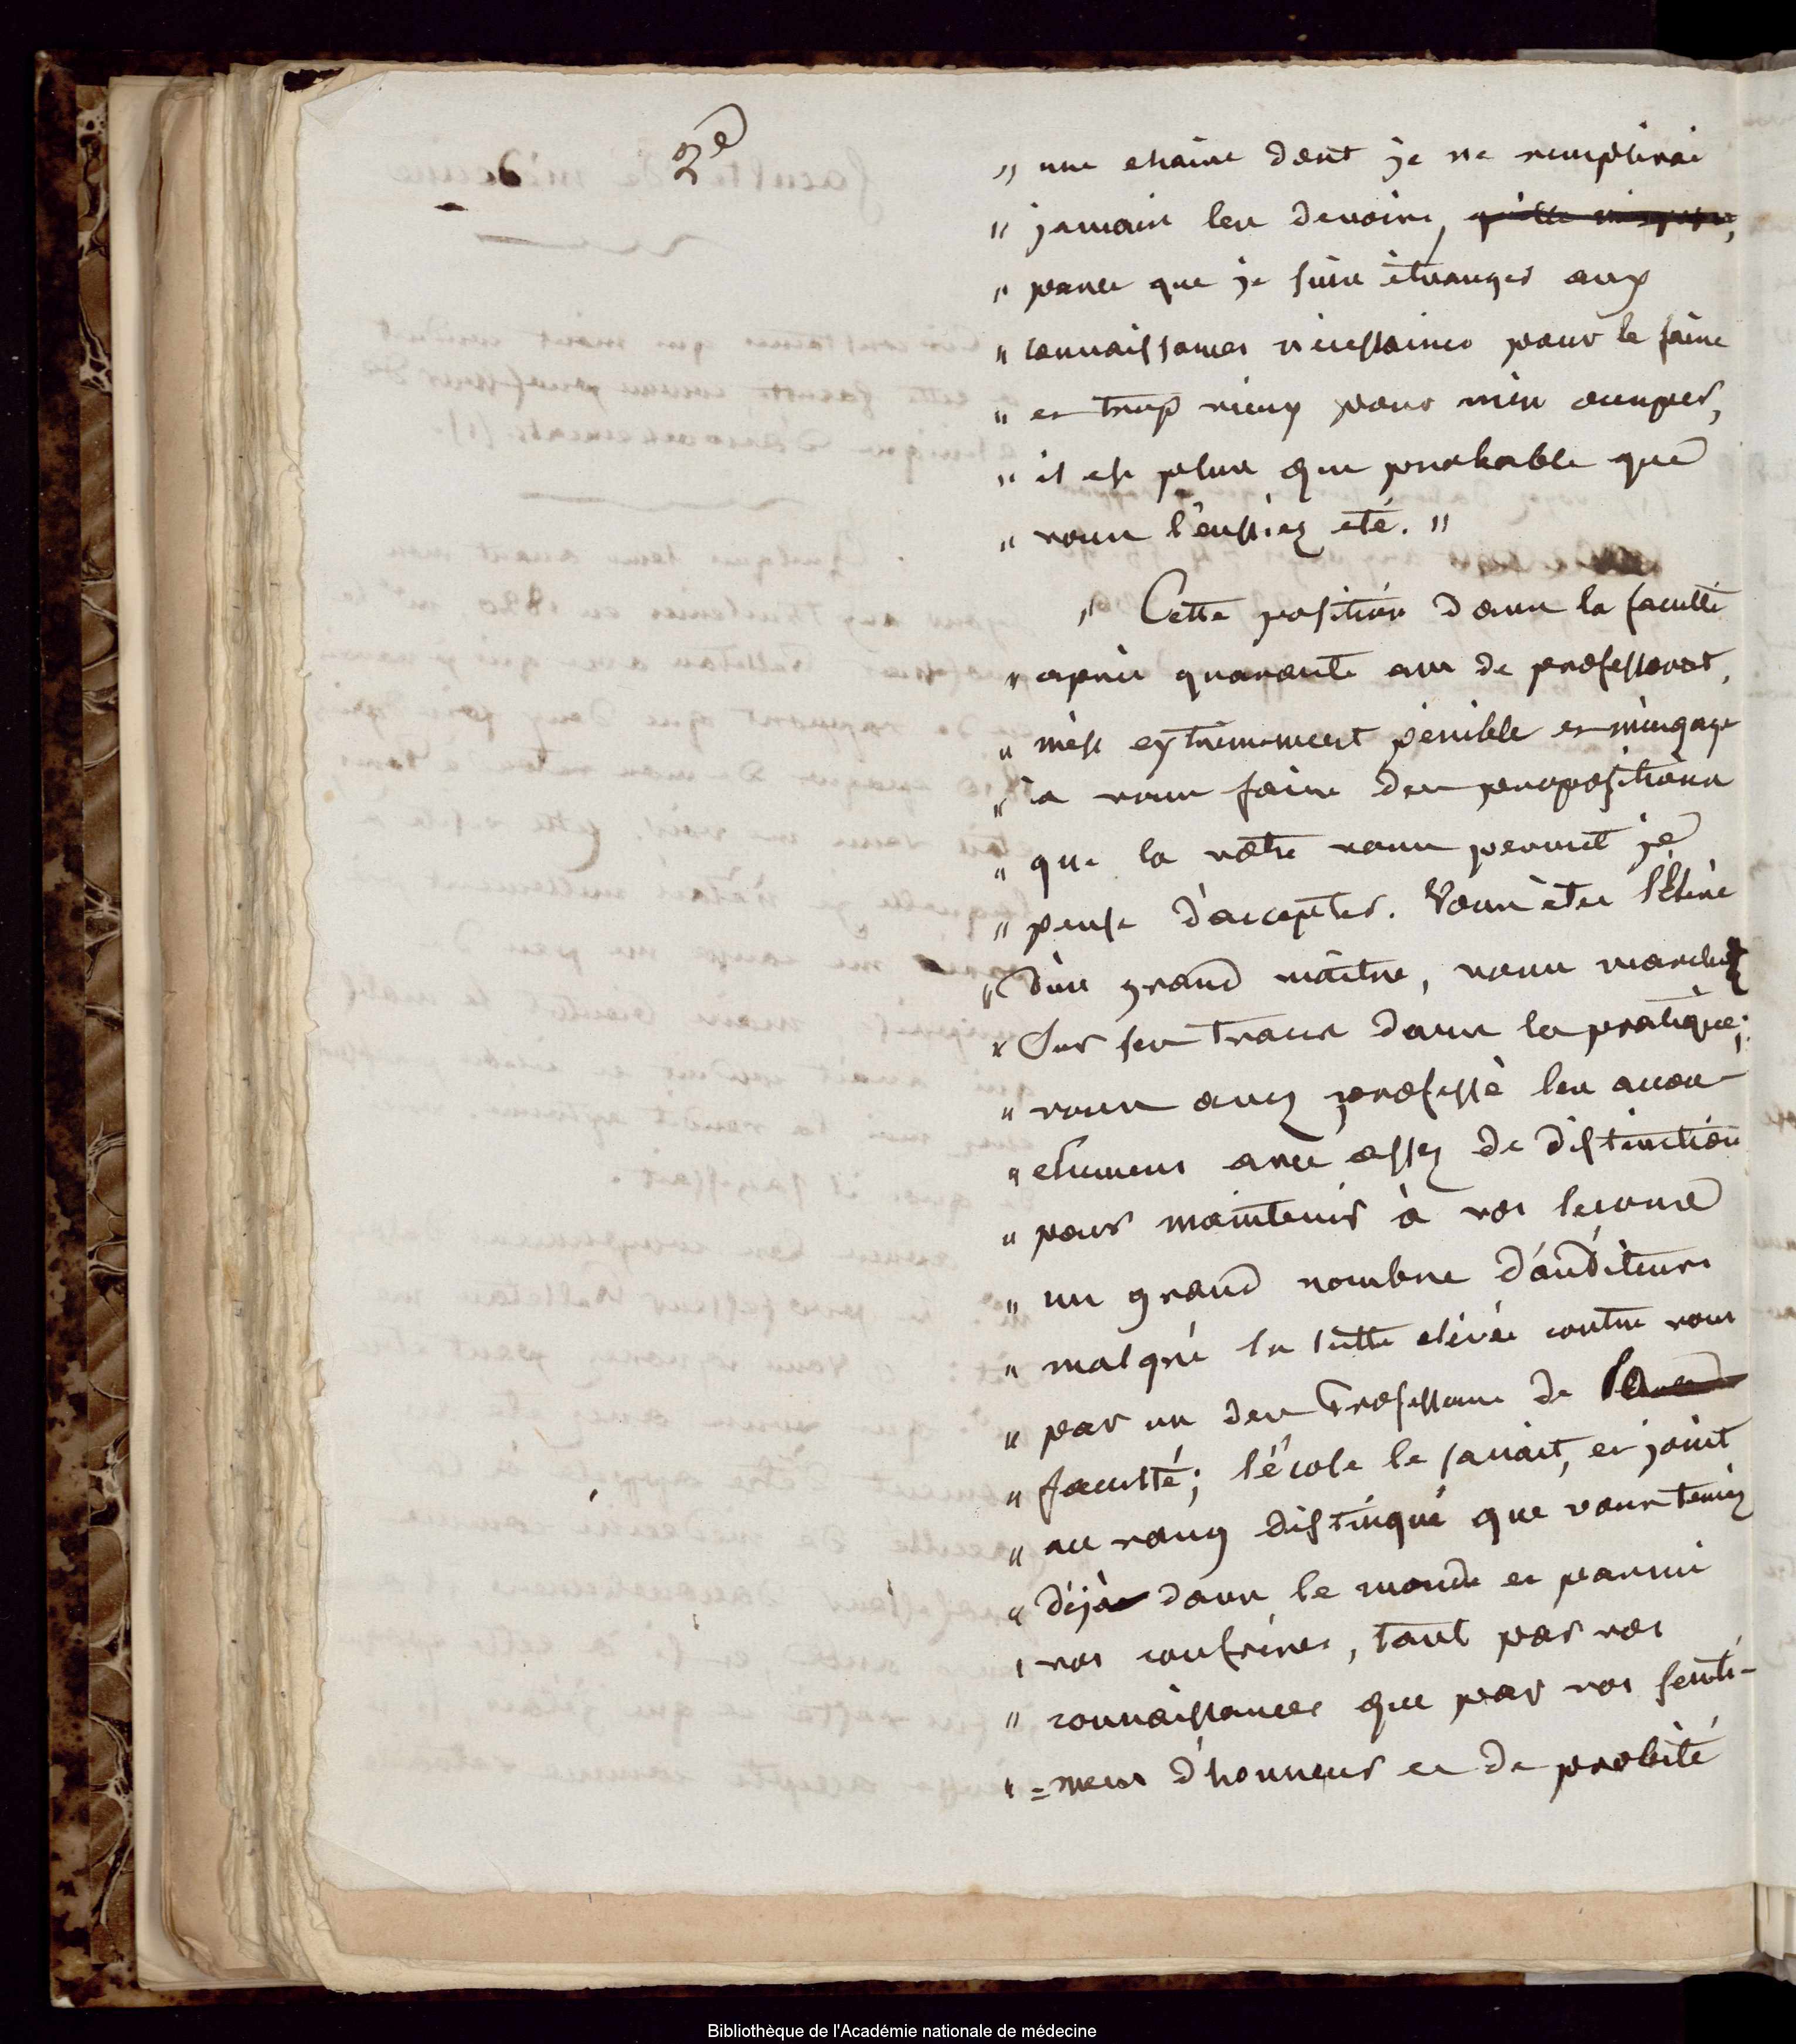 2e
" une chaire dont je ne remplirai
" jamais les devoirs, qu'elle m'impose,
" parce que je suis étranger aux
" connaissances nécessaires pour le faire
" et trop vieux pour m'en occuper,
" il est plus que probable que
" vous l'eussiez été. "
" Cette position dans la faculté
" après quarante ans de professorat,
" m'est extrêmement pénible et m'engage
" à vous faire des propositions
" que la vôtre vous permet je
" pense d'accepter. Vous êtes l'élève
" d'un grand maître, vous marchez
" sur ses traces dans la pratique;
" vous avez professé les accou-
" chemens avec assez de distinction
" pour maintenir à vos leçons
" un grand nombre d'auditeurs
" malgré la lutte elévée contre vous
" par un des Professeurs de la
" faculté; l'école le savait, et joint
" au rang distingué que vous teniez
" déjà dans le monde et parmi
" vos confrères, tant par vos
" connaissances que par vos senti-
" =mens d'honneur et de probité
Bibliothèque de l'Académie nationale de médecine